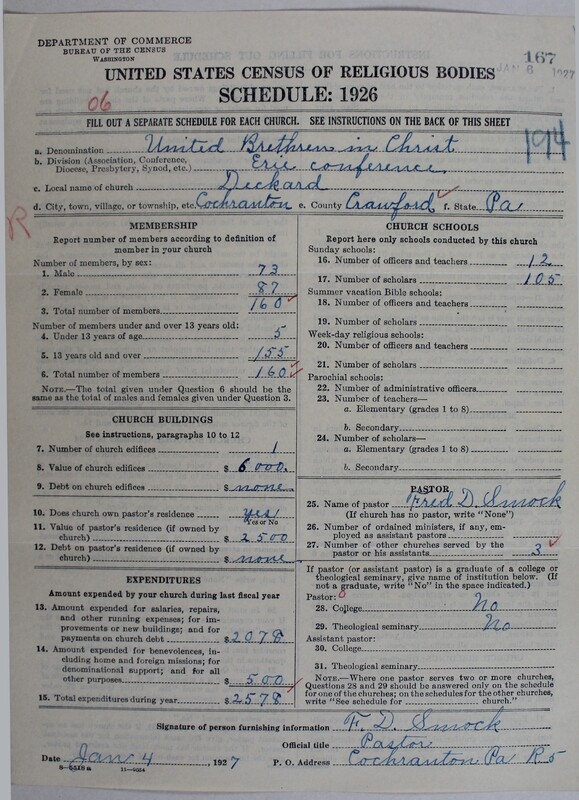 DEPARTMENT OF COMMERCE
BUREAU OF THE CENSUS
WASHINGTON
167
JAN 6 1927
UNITED STATES CENSUS OF RELIGIOUS BODIES
SCHEDULE: 1926
06
FILL OUT A SEPARATE SCHEDULE FOR EACH CHURCH. SEE INSTRUCTIONS ON THE BACK OF THIS SHEET
194
a. Denomination United Brethren in Christ
b. Division (Association, Conference, Diocese, Presbytery, Synod, etc.) Erie conference
c. Local name of church Deckard
d. City, town, village, or township, etc. Cochranton e. County Crawford f. State Pa
R
MEMBERSHIP
Report number of members according to definition of
member in your church
Number of members, by sex:
1. Male 73
2. Female 87
3. Total number of members 160
Number of members under and over 13 years old:
4. Under 13 years of age 5
5. 13 years old and over 155
6. Total number of members 160
NOTE.—The total given under Question 6 should be
same as the total of males and females given under Question 3.
CHURCH BUILDINGS
See instructions, paragraphs 10 to 12
7. Number of church edifices 1
8. Value of church edifices $ 6000
9. Debt on church edifices $ none
10. Does church own pastor's residence? yes
Yes or No
11. Value of pastor's residence (if owned by
church) $ 2500
12. Debt on pastor's residence (if owned by
church) $ none
EXPENDITURES
Amount expended by your church during last fiscal year
13. Amount expended for salaries, repairs,
and other running expenses; for im-
provements or new buildings; and for
payments on church debt $ 2078
14. Amount expended for benevolences, in-
cluding home and foreign missions; for
denominational support; and for all
other purposes $ 500
15. Total expenditures during year $ 2578
CHURCH SCHOOLS
Report here only schools conducted by this church
Sunday schools:
16. Number of officers and teachers 12
17. Number of scholars 105
Summer vacation Bible schools:
18. Number of officers and teachers
19. Number of scholars
Week-day religious schools:
20. Number of officers and teachers
21. Number of scholars
Parochial schools:
22. Number of administrative officers
23. Number of teachers—
a. Elementary (grades 1 to 8)
b. Secondary
24. Number of scholars—
a. Elementary (grades 1 to 8)
b. Secondary
PASTOR
25. Name of pastor Fred D. Smock
(If church has no pastor, write "None")
26. Number of ordained ministers, if any, em-
ployed as assistant pastors
27. Number of other churches served by the
pastor or his assistants 3
If pastor (or assistant pastor) is a graduate of a college or
theological seminary, give name of institution below. (If
not a graduate, write "No" in the space indicated.)
Pastor:
28. College No
29. Theological seminary No
Assistant pastor:
30. College
31. Theological seminary
NOTE.—Where one pastor serves two or more churches,
Questions 28 and 29 should be answered only on the schedule
for one of the churches; on the schedules for the other churches,
write "See schedule for church."
Signature of person furnishing information F. D. Smock
Official title Pastor
Date Jan 4, 1927 P. O. Address Cochranton Pa R 5